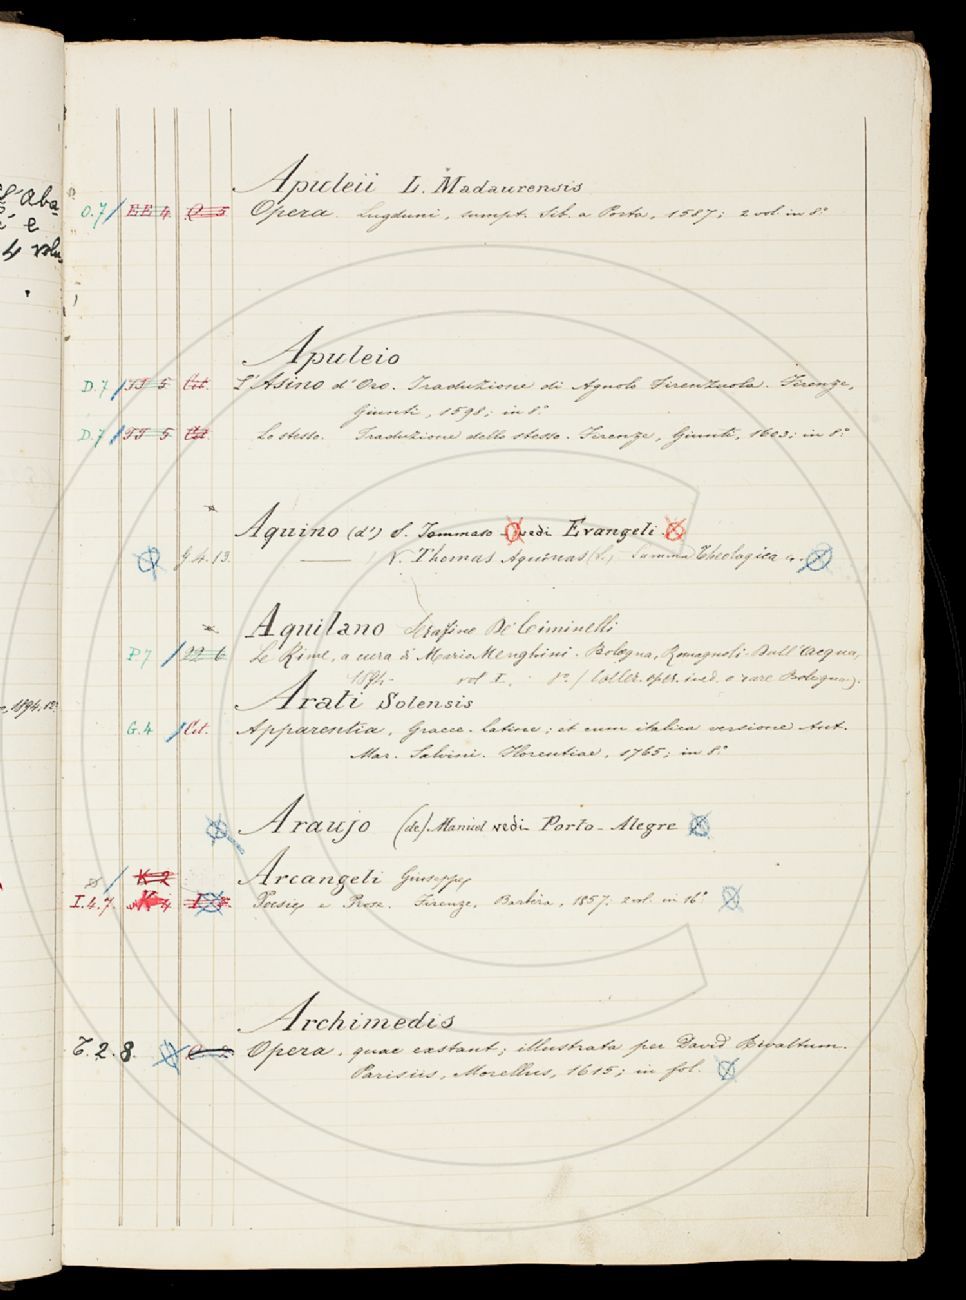 l'Aba-
è e
4 volu-
Apuleii L. Madaurensis
O.7 / EE 4 O 5 Opera. Lugduni, sumpt. Sib. a Porta, 1587; 2 vol. in 8.°
Apuleio
D.7 / TT 5 Cet. L'Asino d'Oro. Traduzione di Agnolo Firenzuola. Firenze,
Giunti, 1598; in 8.°
D.7 / TT 5 Cet. Lo stesso. Traduzione dello stesso. Firenze, Giunti, 1603; in 8.°
Aquino (d') S. Tommaso vedi Evangeli.
G.4.13. V. Thomas Aquinas (S.), Summa Theologica
Aquilano Serafino De' Ciminelli
P.7 / 6 Le Rime, a cura di Mario Menghini. Bologna, Romagnoli-Dall'Acqua,
1894. vol I, 8.° (Collez. oper. ined. o rare Bologna).
, 1894. 12.°
Arati Solensis
G.4 / Cet. Apparentia, Graece-Latine; et cum italica versione Ant.
Mar. Salvini. Florentiae, 1765; in 8.°
Araujo (de) Manuel vedi Porto-Alegre
K 2
Arcangeli Giuseppe
I.4.7. K 4 Poesie e Prose. Firenze, Barbèra, 1857; 2 vol. in 16.°
Archimedis
T.2.8. Opera, quae extant; illustrata per David Rivaltum.
Parisiis, Morellus, 1615; in fol.